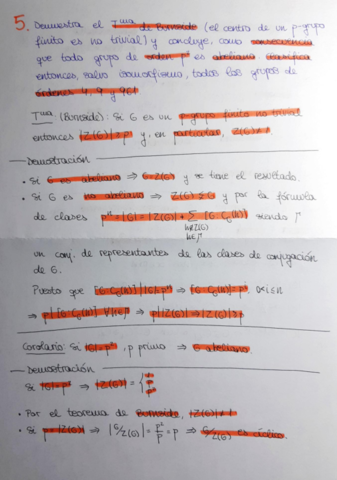 5. Demuestra el Tma de Burnside (el centro de un p-grupo
finito es no trivial) y concluye, como consecuencia
que todo grupo de orden p² es abeliano. Clasifica
entonces, salvo isomorfismo, todos los grupos de
órdenes 4, 9 y 961
Tma. (Burnside): Si G es un p-grupo finito no trivial
entonces |Z(G)| ≥ p y, en particular, Z(G) ≠ 1
Demostración
• Si G es abeliano ⇒ G = Z(G) y se tiene el resultado.
• Si G es no abeliano ⇒ Z(G) ≤ G y por la fórmula
de clases pⁿ = |G| = |Z(G)| + Σ [G: C_G(h)] siendo Γ
h∉Z(G)
h∈Γ
un conj. de representantes de las clases de conjugación
de G.
Puesto que [G: C_G(h)] | |G| = pⁿ ⇒ [G: C_G(h)] = pⁱ, 0<i≤n
⇒ p | [G: C_G(h)] ⇒ p | |Z(G)| ⇒ |Z(G)| ≥ p
Corolario: Si |G| = p², p primo ⇒ G abeliano
Demostración
Si |G| = p² ⇒ |Z(G)| = { 1 p p²
• Por el teorema de Burnside, |Z(G)| ≠ 1
• Si p = |Z(G)| ⇒ |G/Z(G)| = p²/p = p ⇒ G/Z(G) es cíclico.